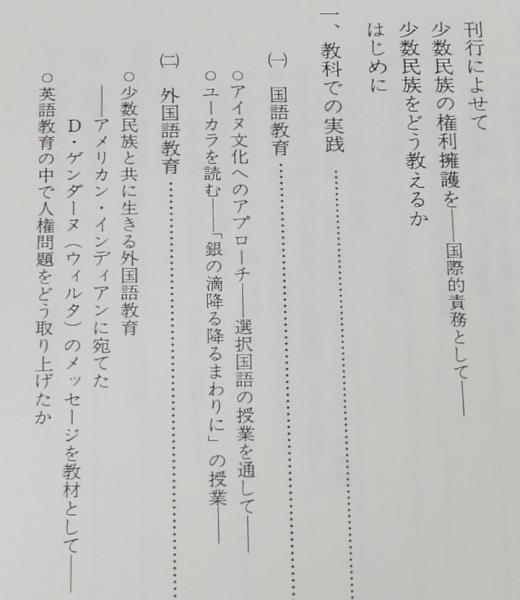 刊行によせて
少数民族の権利擁護を――国際的責務として――
少数民族をどう教えるか
はじめに
一、教科での実践 ……………………………
㈠ 国語教育 ……………………………
○アイヌ文化へのアプローチ――選択国語の授業を通して――
○ユーカラを読む――「銀の滴降る降るまわりに」の授業――
㈡ 外国語教育 ……………………………
○少数民族と共に生きる外国語教育
――アメリカン・インディアンに宛てた
D・ゲンダーヌ（ウィルタ）のメッセージを教材として――
○英語教育の中で人権問題をどう取り上げたか